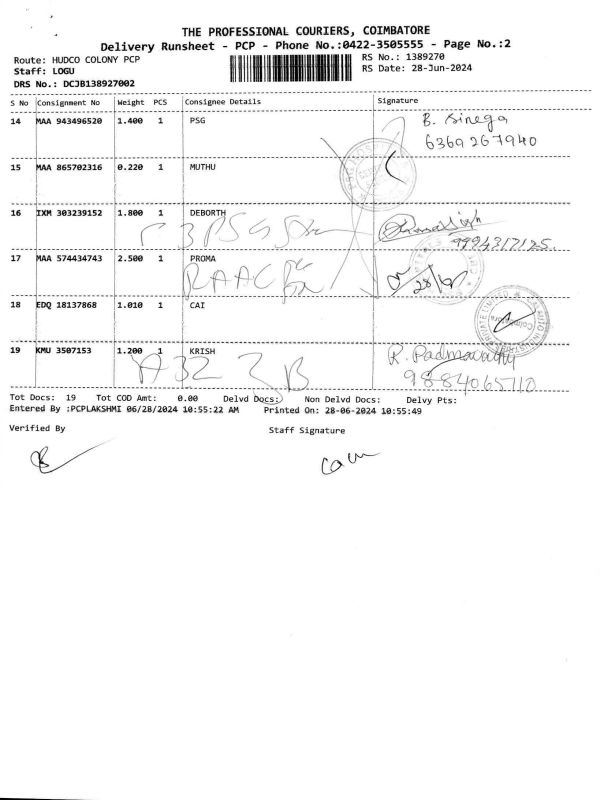 THE PROFESSIONAL COURIERS, COIMBATORE
Delivery Runsheet - PCP - Phone No.:0422-3505555 - Page No.:2
Route: HUDCO COLONY PCP RS No.: 1389270
Staff: LOGU RS Date: 28-Jun-2024
DRS No.: DCJB138927002
S No Consignment No Weight PCS Consignee Details Signature
14 MAA 943496520 1.400 1 PSG B. Sinega
6369267940
15 MAA 865702316 0.220 1 MUTHU
16 IXM 303239152 1.800 1 DEBORTH
9994317125
17 MAA 574434743 2.500 1 PROMA
RAAC 28/6
18 EDQ 18137868 1.010 1 CAI
19 KMU 3507153 1.200 1 KRISH R. Padmavathy
A32 3B 9884065710
Tot Docs: 19 Tot COD Amt: 0.00 Delvd Docs: Non Delvd Docs: Delvy Pts:
Entered By :PCPLAKSHMI 06/28/2024 10:55:22 AM Printed On: 28-06-2024 10:55:49
Verified By Staff Signature